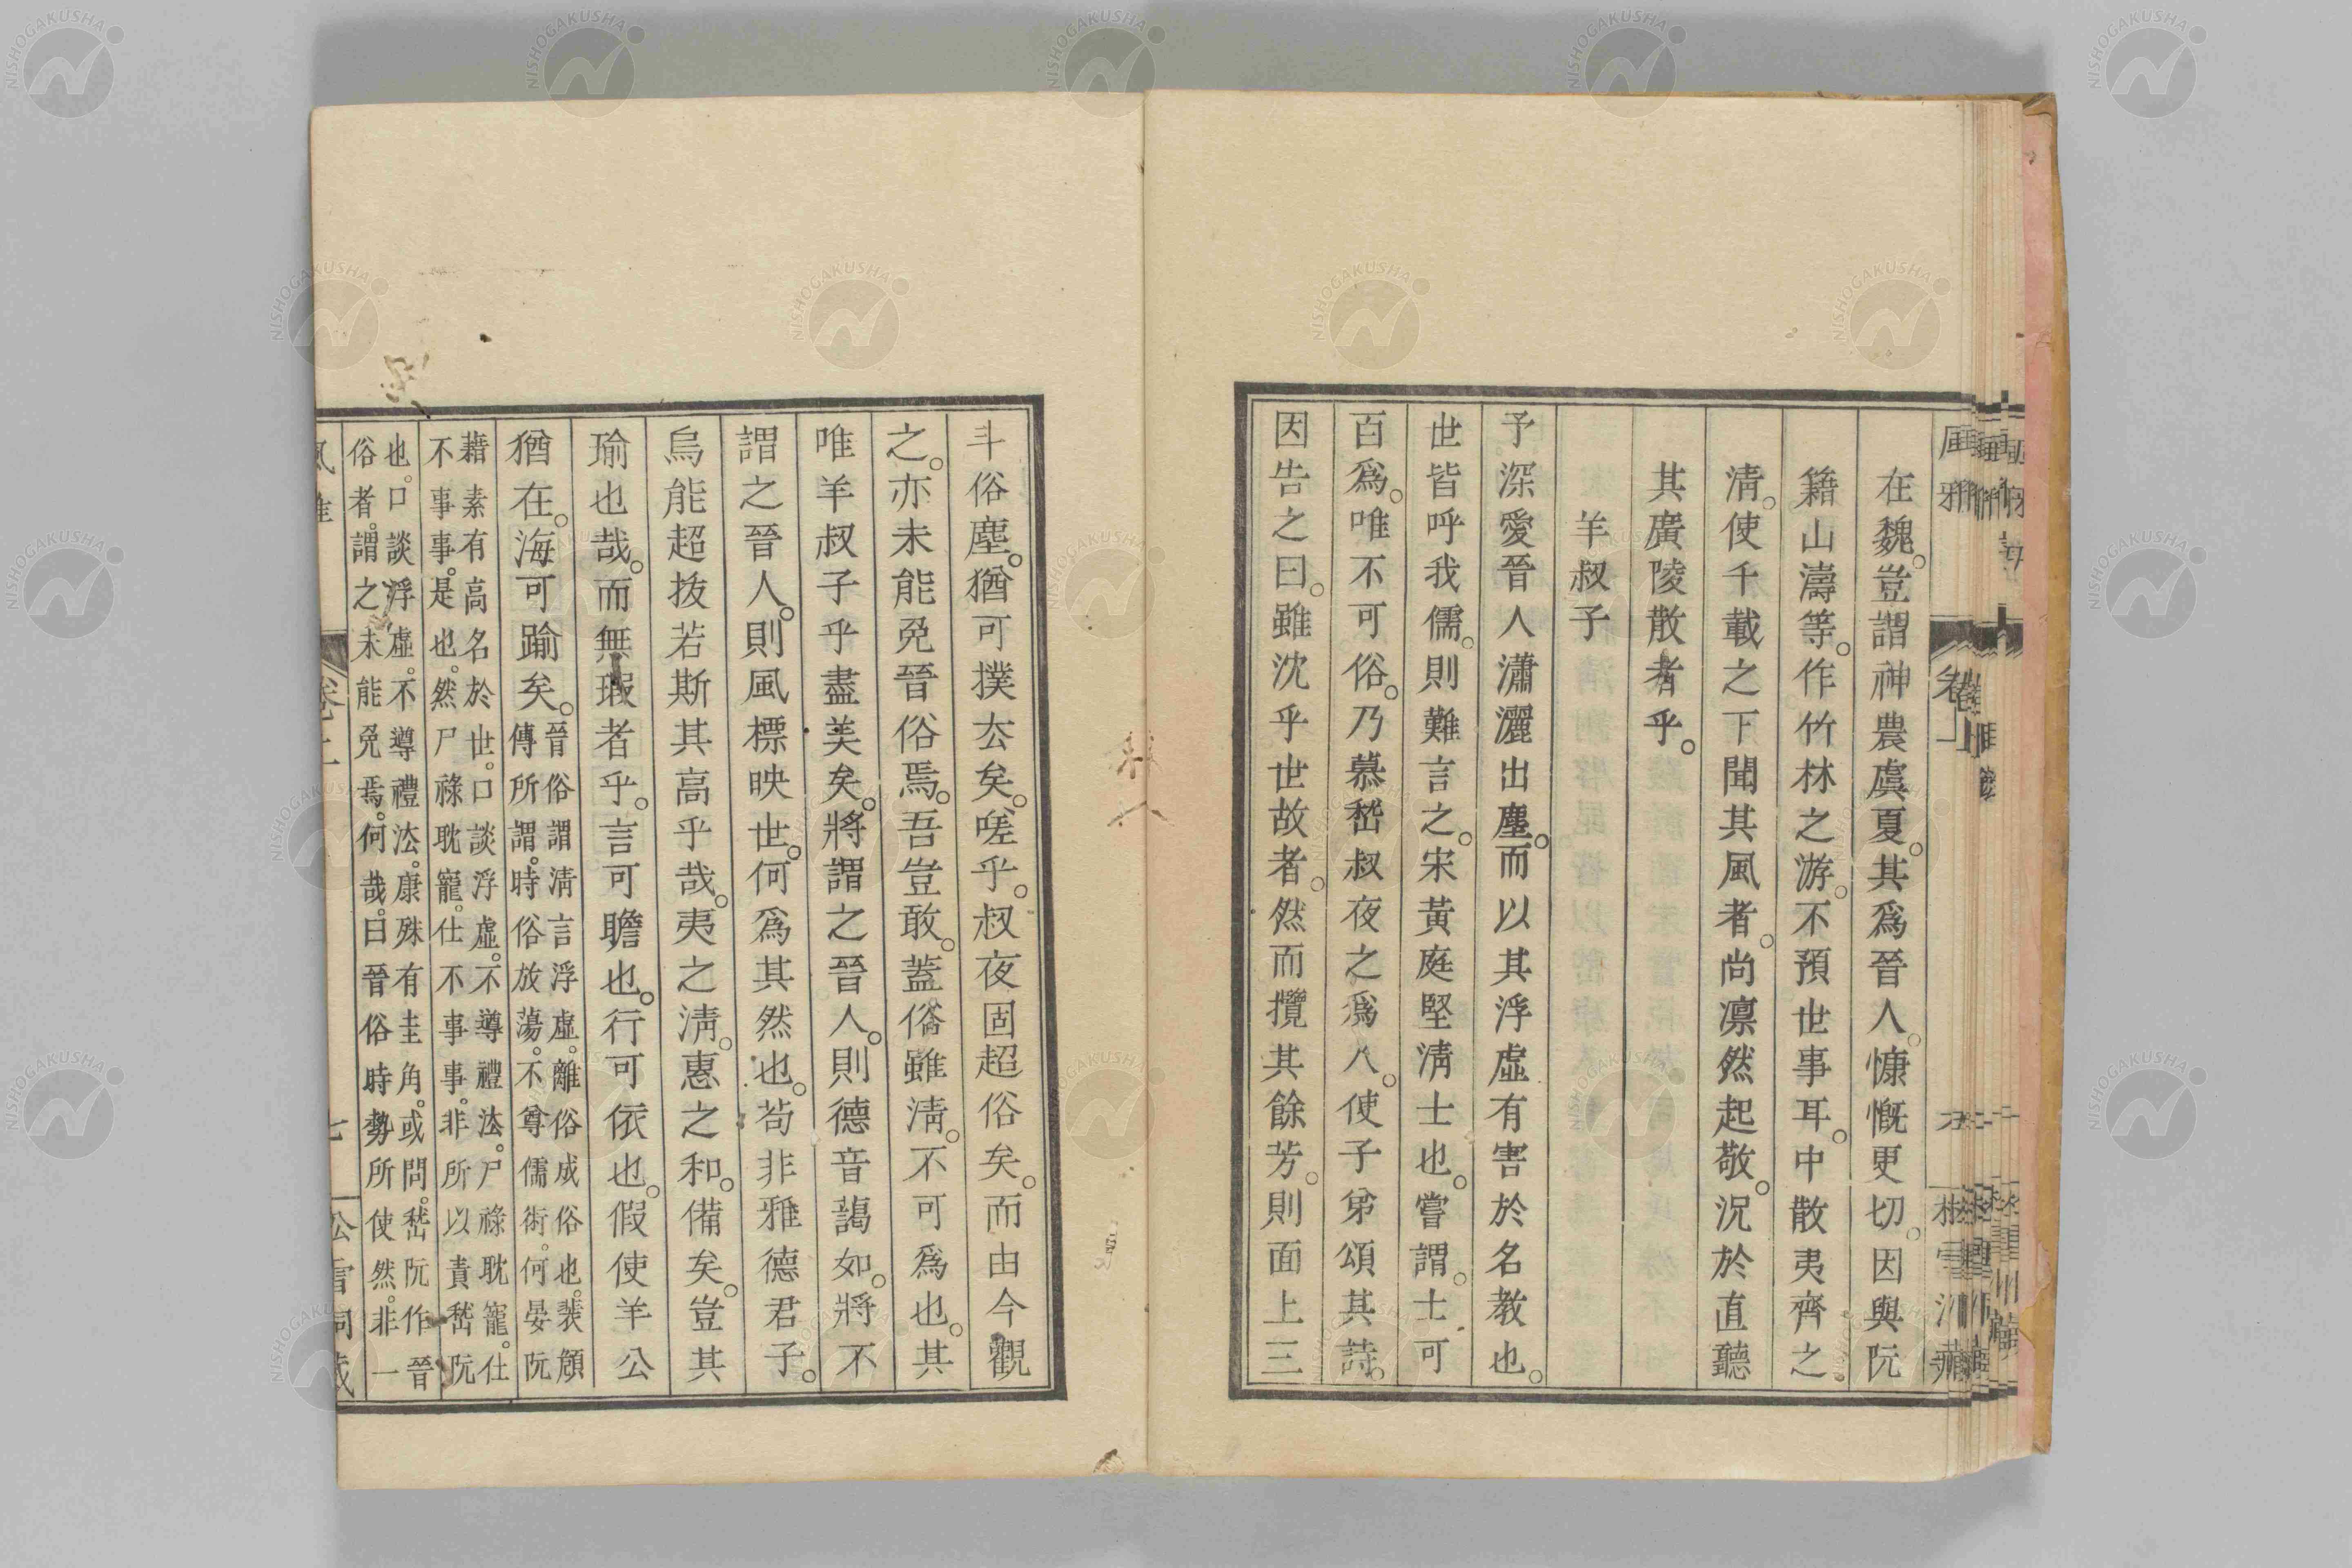 在魏。豈謂神農虞夏。其爲晉人。慷慨更切。因與阮
籍山濤等。作竹林之游。不預世事耳。中散夷齊之
淸。使千載之下聞其風者。尚凛然起敬。況於直聽
其廣陵散者乎。
羊叔子
予深愛晉人瀟灑出塵。而以其浮虛有害於名教也。
世皆呼我儒。則難言之。宋黃庭堅淸士也。嘗謂。士可
百爲。唯不可俗。乃慕嵆叔夜之爲人。使子弟頌其詩。
因告之曰。雖沈乎世故者。然而攬其餘芳。則面上三
斗俗塵。猶可撲去矣。嗟乎。叔夜固超俗矣。而由今觀
之。亦未能免晉俗焉。吾豈敢。蓋俗雖淸。不可爲也。其
唯羊叔子乎盡美矣。將謂之晉人。則德音藹如。將不
謂之晉人。則風標映世。何爲其然也。苟非雅德君子。
烏能超拔若斯其高乎哉。夷之淸。惠之和。備矣。豈其
瑜也哉。而無瑕者乎。言可瞻也。行可依也。假使羊公
猶在。海可踰矣。
晉俗謂淸言浮虛。離俗成俗也。裴頠
傳所謂。時俗放蕩。不尊儒術。何晏阮
籍素有高名於世。口談浮虛。不導禮法。尸祿耽寵。仕
不事事。是也。然尸祿耽寵。仕不事事。非所以責嵆阮
也。口談浮虛。不導禮法。康殊有圭角。或問。嵆阮作晉
俗者。謂之未能免焉。何哉。曰晉俗時勢所使然。非一
NISHOGAKUSHA